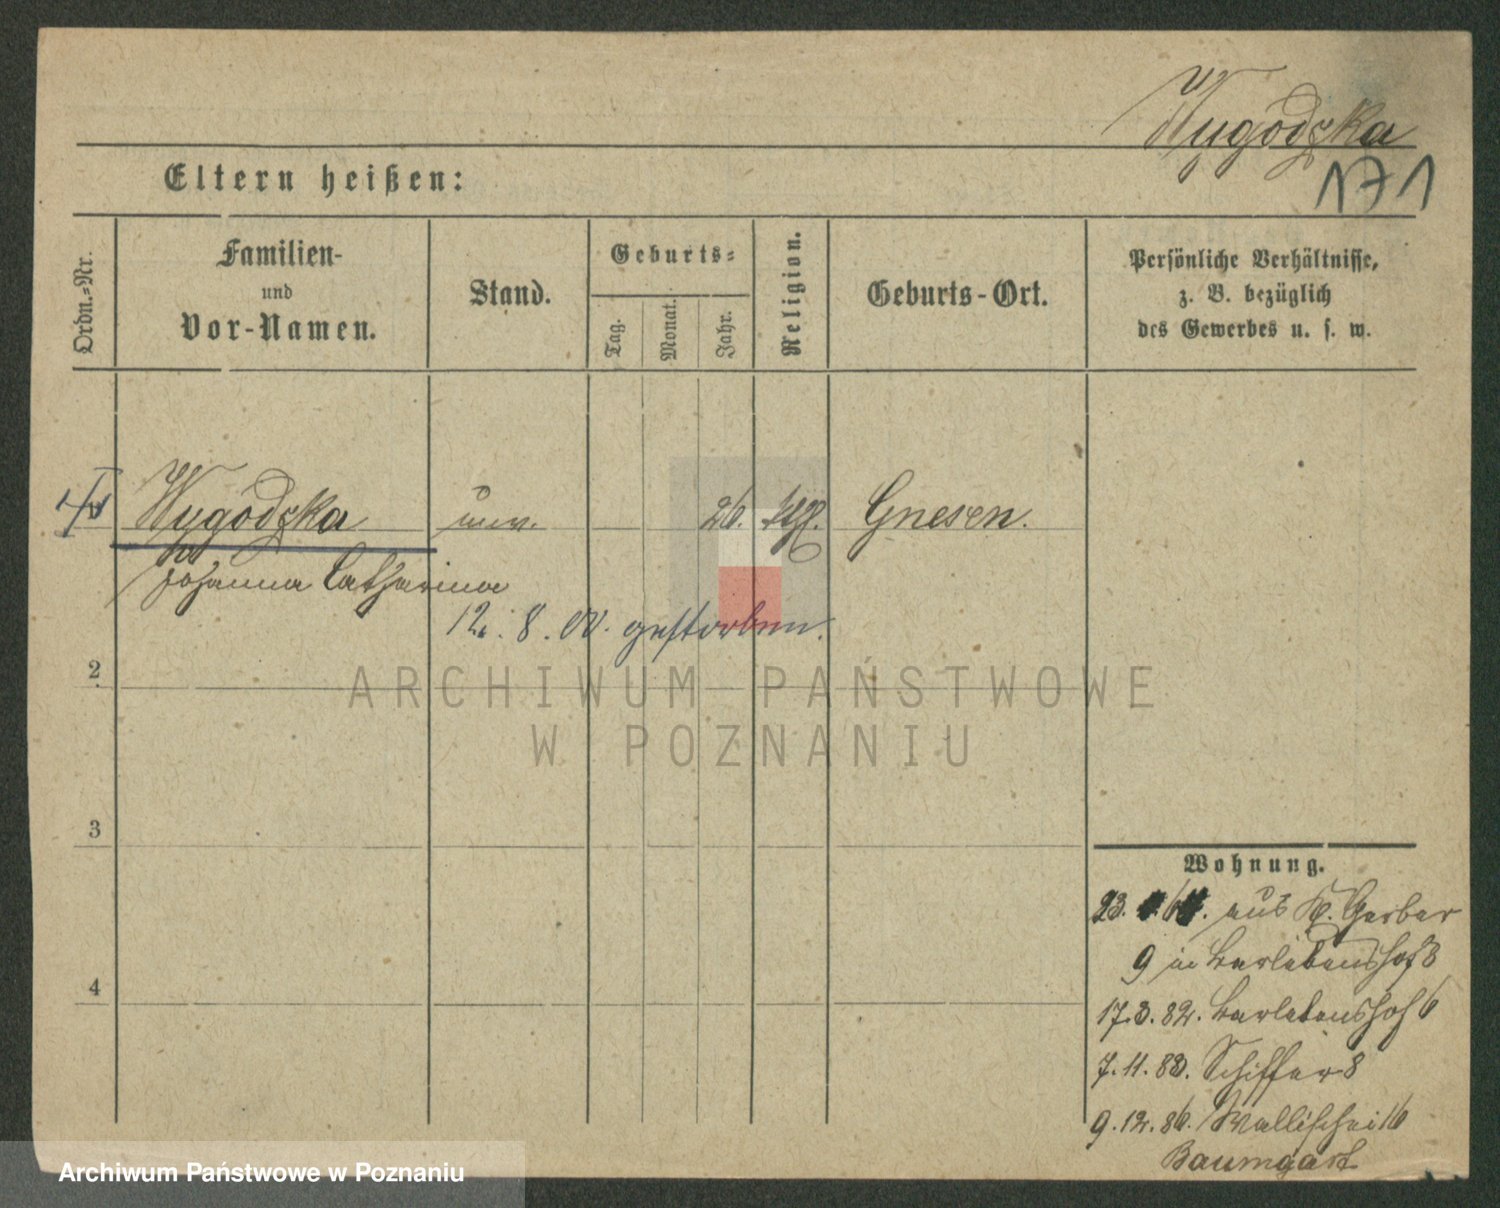 Wygodzka
171
Eltern heißen:
Ordn.-Nr.
Familien-
und
Vor-Namen.
Stand.
Geburts-
Tag.
Monat.
Jahr.
Religion.
Geburts-Ort.
Persönliche Verhältnisse,
z. B. bezüglich
des Gewerbes u. s. w.
Wygodzka unv. 26. ktgl. Gnesen.
Johanna Catharina
12. 8. 00. gestorben.
2
ARCHIWUM PAŃSTWOWE
W POZNANIU
3
Wohnung.
23. aus K. Gerber
9 in Berlebenshof 8
4
17.3.82. Berlebenshof 6
7.11.83. Schiffer 8
9.12.86. Wallischei 16
Baumgart
Archiwum Państwowe w Poznaniu